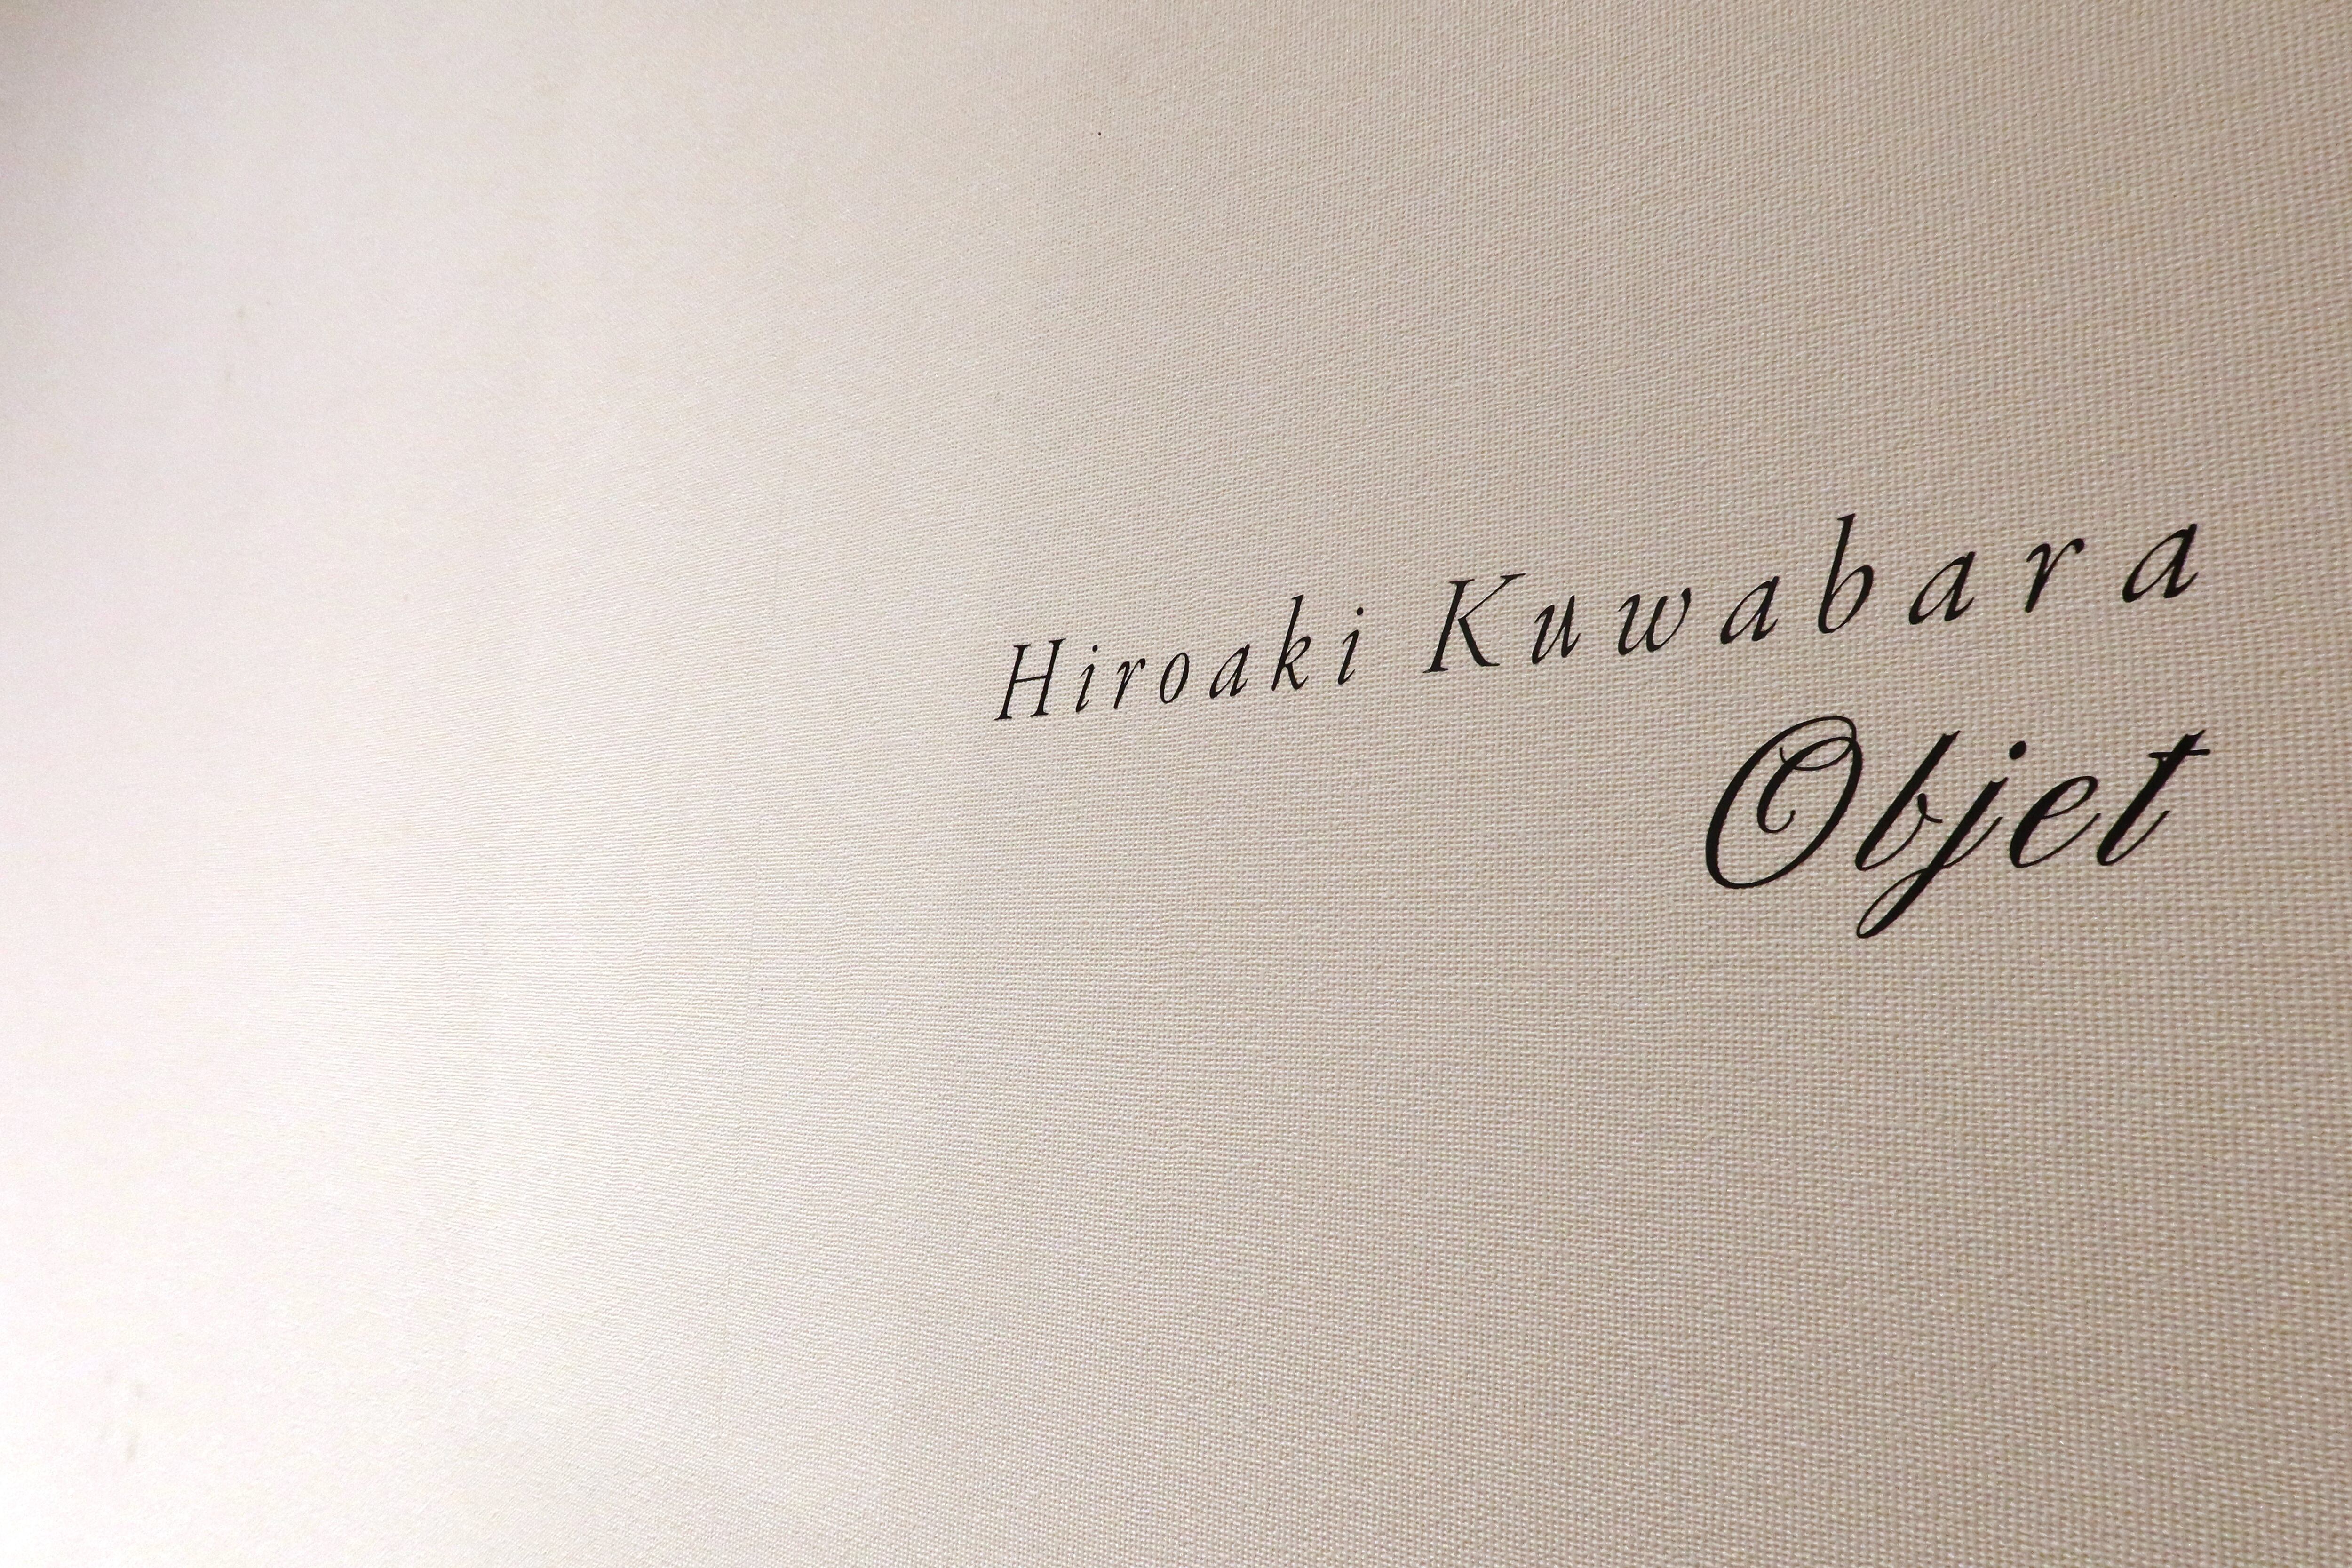 Hiroaki Kuwabara
Objet